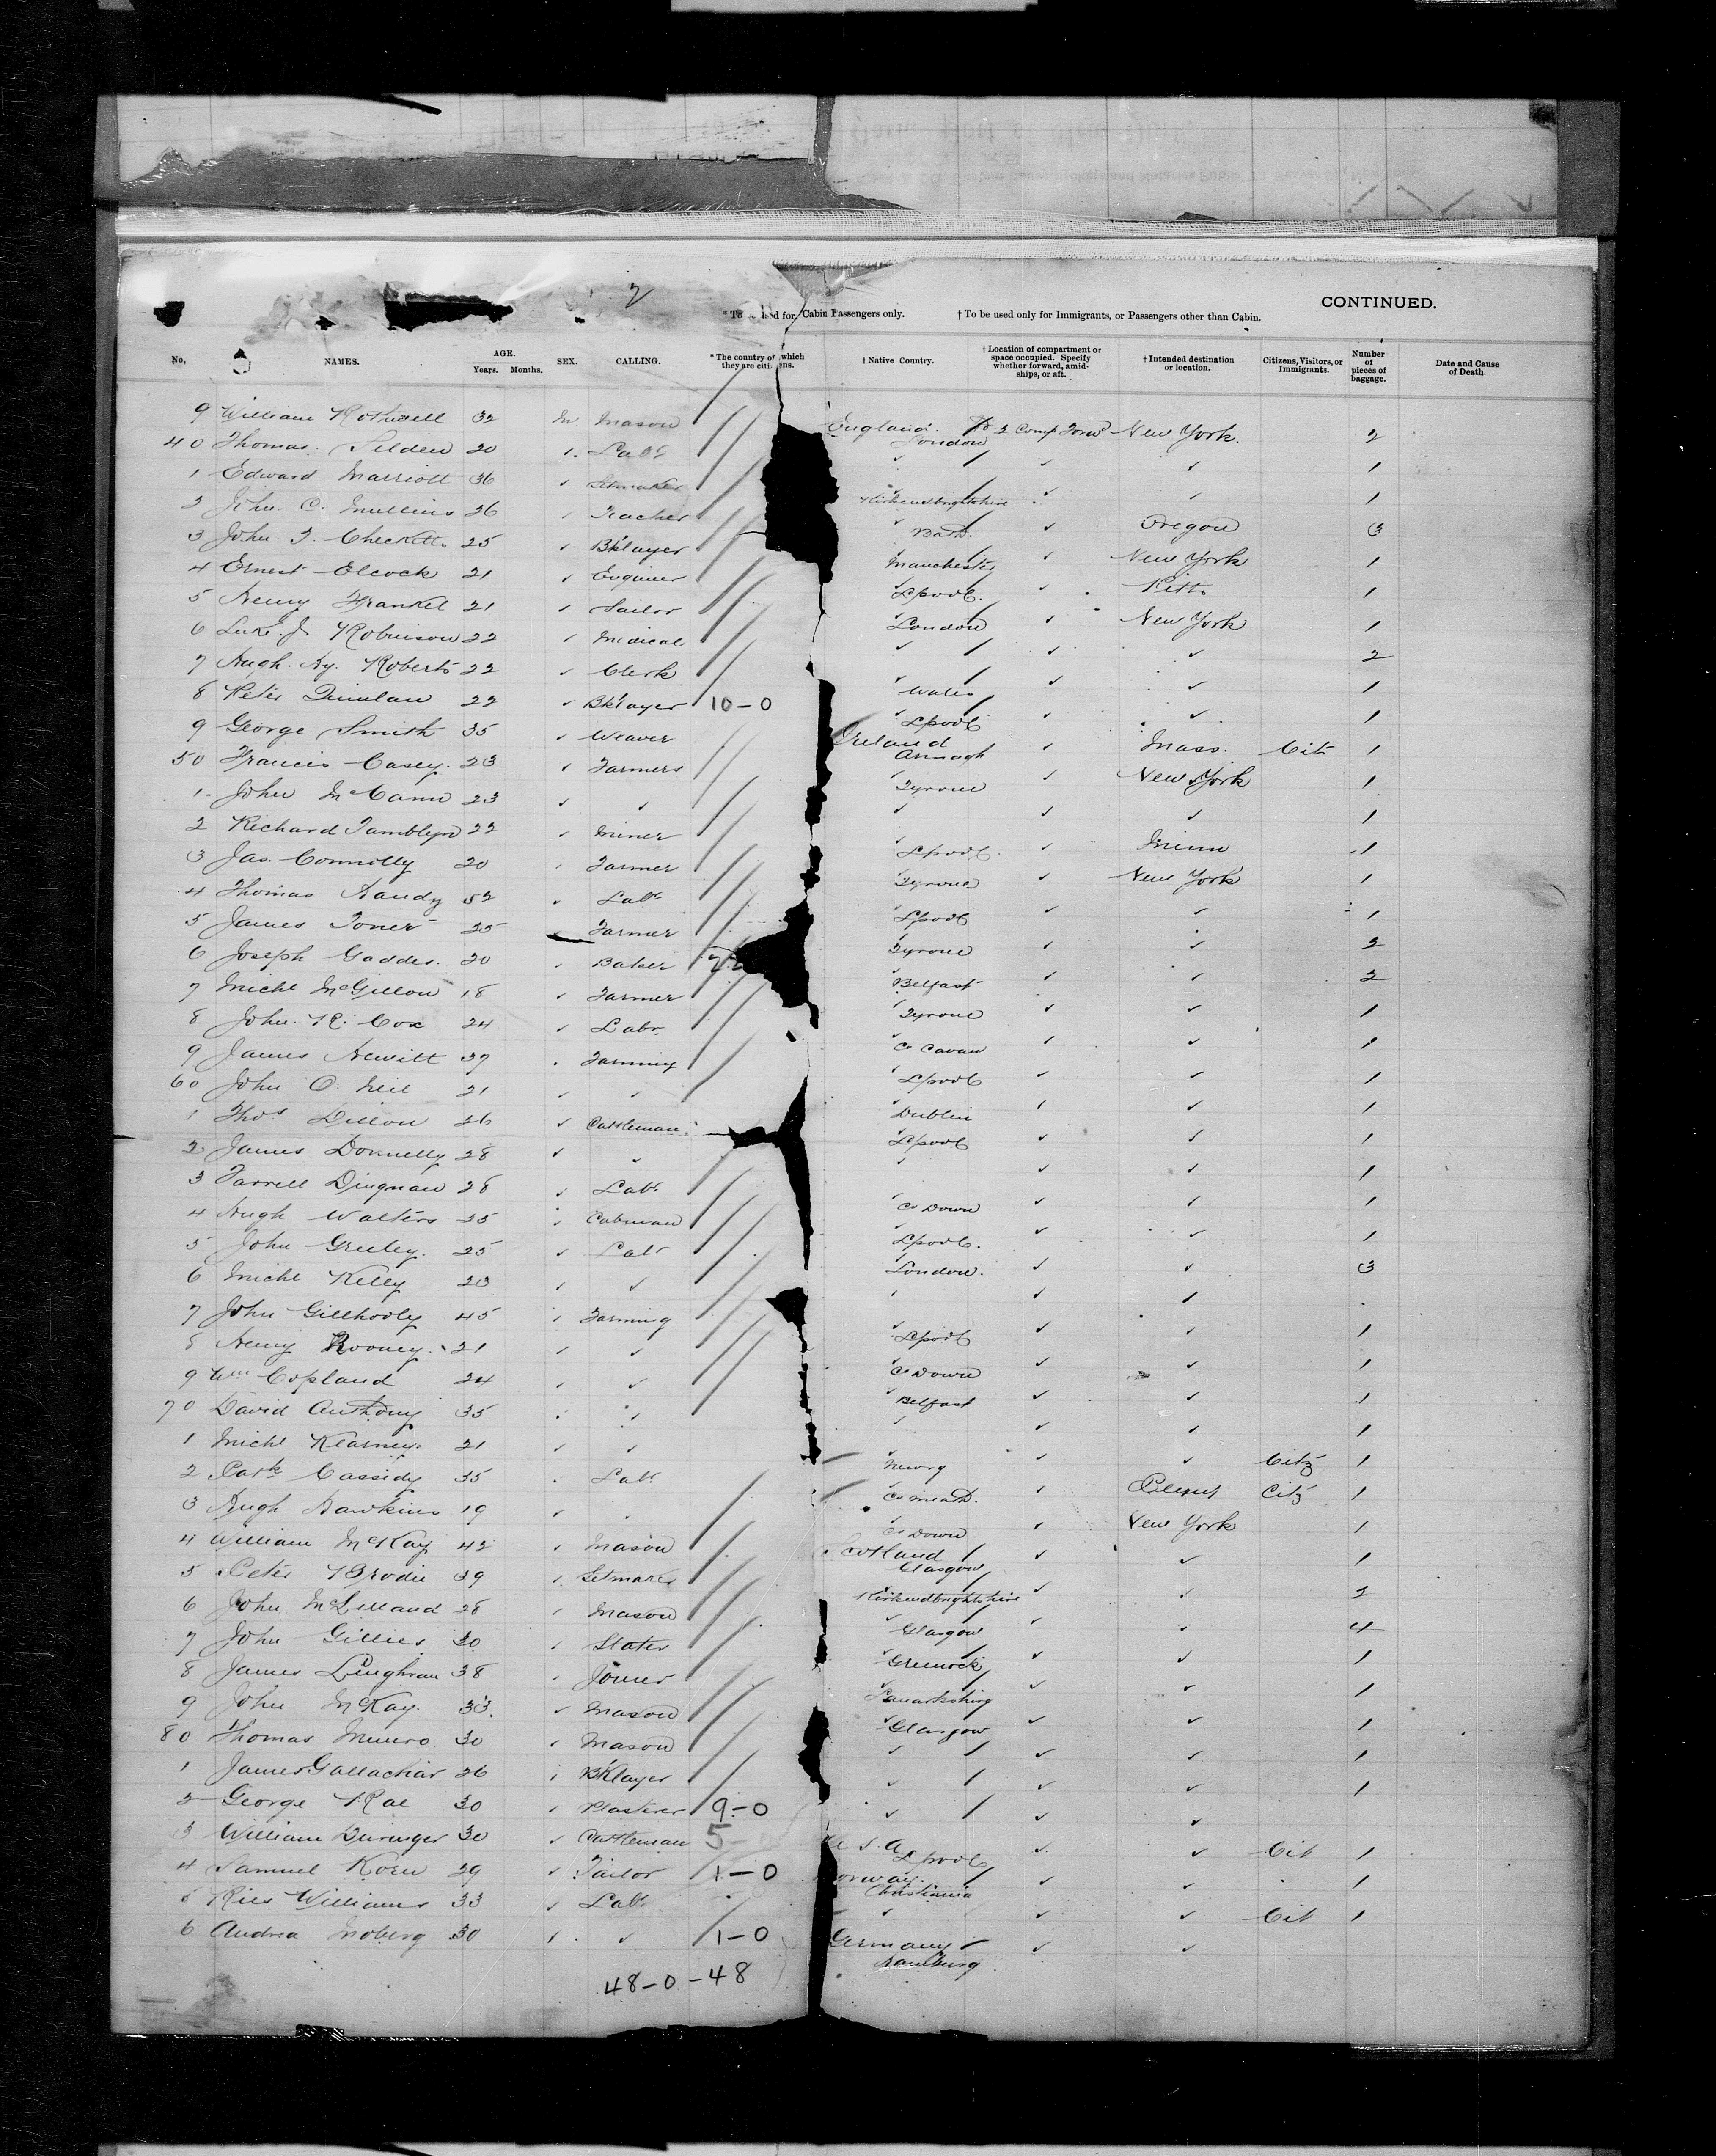 2
CONTINUED.
* To be used for Cabin Passengers only. † To be used only for Immigrants, or Passengers other than Cabin.
No. NAMES. AGE. Years. Months. SEX. CALLING. * The country of which they are citizens. † Native Country. † Location of compartment or space occupied. Specify whether forward, amidships, or aft. † Intended destination or location. Citizens, Visitors, or Immigrants. Number of pieces of baggage. Date and Cause of Death.
9 William Rothwell 32 M. Mason England London 2 Comp Forwd New York. 2
40 Thomas Selden 20 ✓ Labr ✓ ✓ ✓ 1
1 Edward Marriott 36 ✓ Setmaker Kirkcudbrightshire ✓ ✓ 1
2 John C. Mullins 26 ✓ Teacher ✓ Bath. ✓ Oregon 3
3 John J. Checketts 25 ✓ Bklayer ✓ Manchester ✓ New York 1
4 Ernest Elcock 21 ✓ Engineer ✓ Lpool. ✓ Pitts 1
5 Henry Frankel 21 ✓ Tailor ✓ London ✓ New York 1
6 Luke J. Robinson 22 ✓ Medical ✓ ✓ ✓ 2
7 Hugh Hy. Roberts 22 ✓ Clerk ✓ Wales ✓ ✓ 1
8 Peter Quinlan 22 ✓ Bklayer 10-0 ✓ Lpool ✓ ✓ 1
9 George Smith 35 ✓ Weaver Ireland Armagh ✓ Mass. Cit 1
50 Francis Casey. 23 ✓ Farmers ✓ Tyrone ✓ New York 1
1 John McCann 23 ✓ ✓ ✓ ✓ ✓ 1
2 Richard Tamblyn 22 ✓ Miner ✓ Lpool. ✓ Minn 1
3 Jas. Connolly 20 ✓ Farmer ✓ Tyrone ✓ New York 1
4 Thomas Handy 52 ✓ Labr ✓ Lpool ✓ ✓ 1
5 James Toner 25 ✓ Farmer ✓ Tyrone ✓ ✓ 2
6 Joseph Gaddes. 20 ✓ Baker ✓ Belfast ✓ ✓ 2
7 Michl McGillon 18 ✓ Farmer ✓ Tyrone ✓ ✓ 1
8 John R. Cox 24 ✓ Labr. ✓ Co Cavan ✓ ✓ 1
9 James Hewitt 37 ✓ Farming ✓ Lpool ✓ ✓ 1
60 John O. Neil 21 ✓ ✓ ✓ Dublin ✓ ✓ 1
1 Thos Dillon 26 ✓ Cattleman ✓ Lpool ✓ ✓ 1
2 James Donnelly 28 ✓ ✓ ✓ ✓ ✓ 1
3 Farrell Dingnan 28 ✓ Labr ✓ Co Down ✓ ✓ 1
4 Hugh Walters 25 ✓ Cabman ✓ Lpool. ✓ ✓ 1
5 John Greeley. 25 ✓ Labr ✓ London. ✓ ✓ 3
6 Michl Kelly 23 ✓ ✓ ✓ ✓ ✓
7 John Gillhooly 45 ✓ Farming ✓ Lpool ✓ ✓ 1
8 Henry Rooney. 21 ✓ ✓ ✓ Co Down ✓ ✓ 1
9 Wm Copland 24 ✓ ✓ ✓ Belfast ✓ ✓ 1
70 David Anthony 35 ✓ ✓ ✓ ✓ ✓ 1
1 Michl Kearney. 21 ✓ ✓ ✓ Newry ✓ ✓ Citz 1
2 Patk Cassidy 35 ✓ Labr ✓ Co Meath. ✓ Citz 1
3 Hugh Hawkins 19 ✓ ✓ ✓ Co Down ✓ New York 1
4 William McKay 42 ✓ Mason Scotland Glasgow ✓ ✓ 1
5 Peter Brodie 39 ✓ Setmaker Kirkcudbrightshire ✓ ✓ 2
6 John McLelland 28 ✓ Mason ✓ Glasgow ✓ ✓ 4
7 John Gillies 30 ✓ Slater ✓ Greenock ✓ ✓ 1
8 James Linghran 38 ✓ Joiner ✓ Lanarkshire ✓ ✓ 1
9 John McKay. 33. ✓ Mason ✓ Glasgow ✓ ✓ 1
80 Thomas Munro 30 ✓ Mason ✓ ✓ ✓ 1
1 James Gallachar 26 ✓ Bklayer ✓ ✓ ✓ 1
2 George Rae 30 ✓ Plasterer 9-0 ✓ ✓ ✓
3 William Buringer 30 ✓ Cattleman 5 U.S.A. Lpool ✓ ✓ Cit 1
4 Samuel Korn 29 ✓ Tailor 1-0 Norway. Christiania ✓ ✓ 1
5 Ries Williams 33 ✓ Labr ✓ ✓ ✓ Cit 1
6 Andrea Moberg 30 ✓ ✓ 1-0 Germany Hamburg ✓ ✓
48-0-48